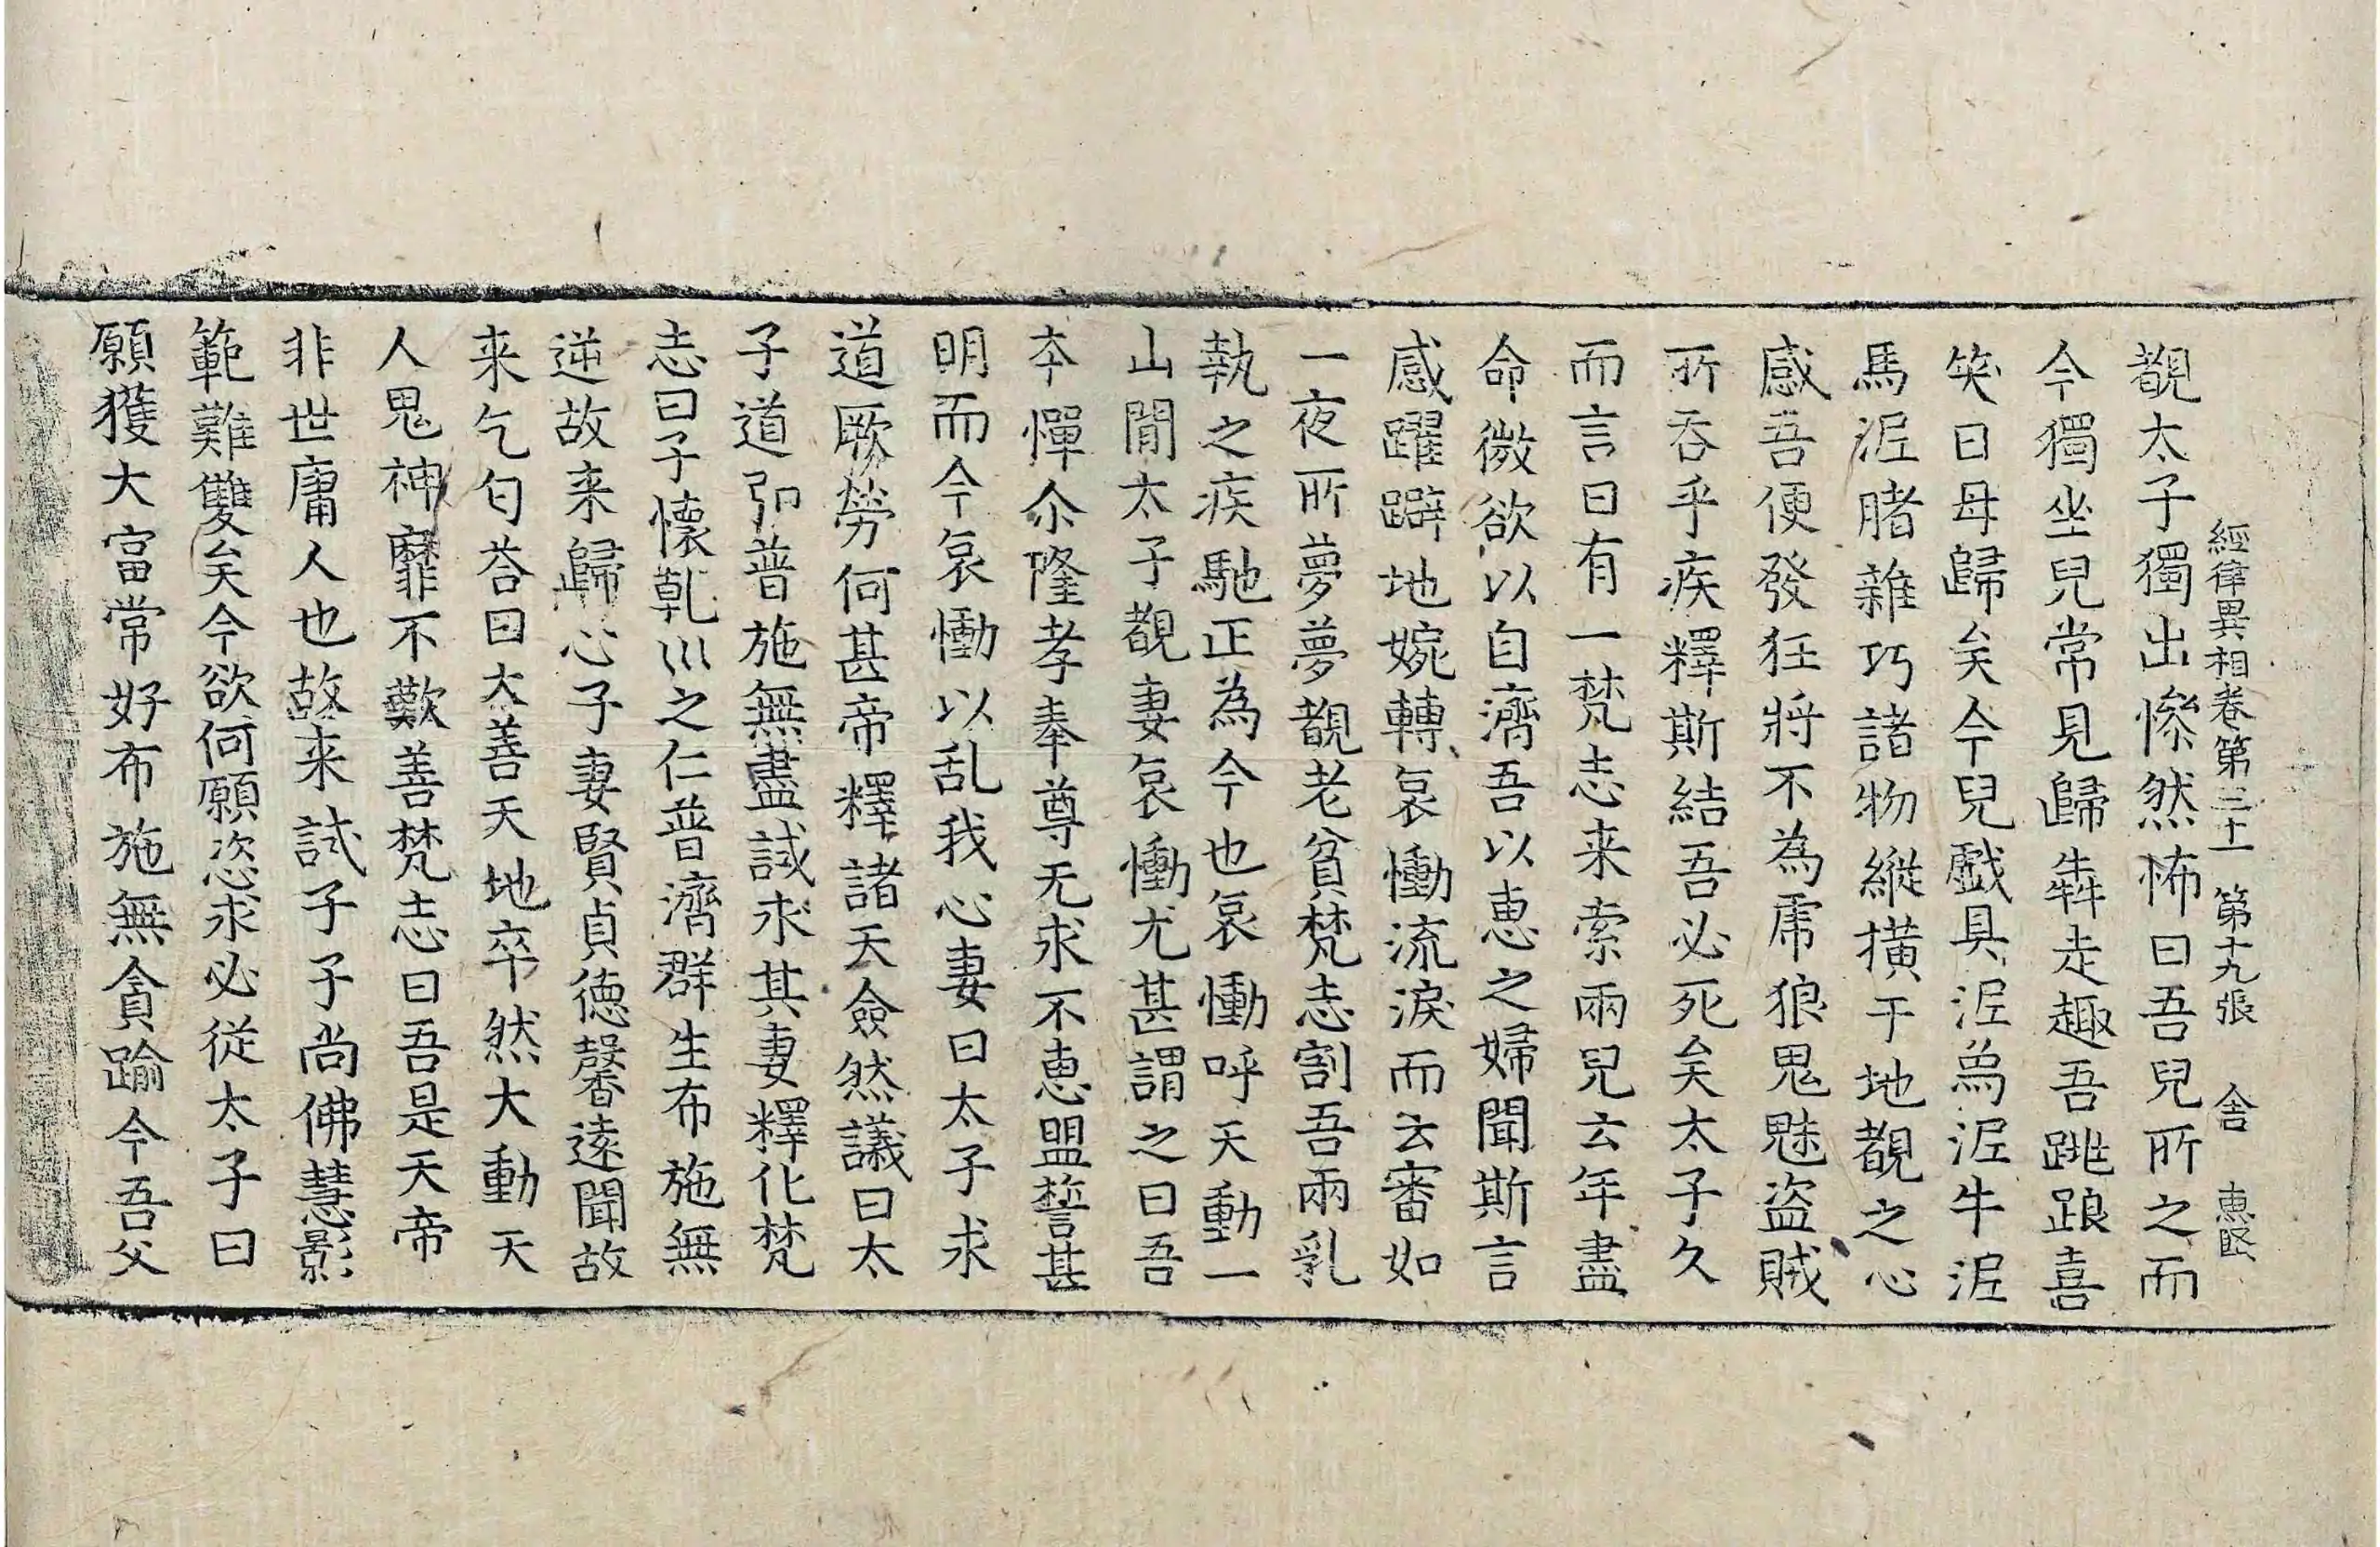 經律異相卷第三十一 第十九張 舍 惠堅
覩太子獨出慘然怖曰吾兒所之而
今獨坐兒常見歸犇走趣吾跳踉喜
笑曰母歸矣今兒戲具泥為泥牛泥
馬泥賭雜巧諸物縱撗于地覩之心
感吾便發狂將不為虎狼鬼魅盗賊
所吞乎疾釋斯結吾必死矣太子久
而言曰有一梵志来索兩兒云年盡
命微欲以自濟吾以惠之婦聞斯言
感躍躃地婉轉哀慟流淚而云審如
一夜所夢夢覩老貧梵志割吾兩乳
執之疾馳正為今也哀慟呼天動一
山間太子覩妻哀慟尤甚謂之曰吾
夲憚尒隆孝奉尊无求不惠盟誓甚
明而今哀慟以乱我心妻曰太子求
道厥勞何甚帝釋諸天僉然議曰太
子道弘普施無盡試求其妻釋化梵
志曰子懷乹巛之仁普濟群生布施無
逆故来歸心子妻賢貞德馨遠聞故
来乞匄荅曰大善天地卒然大動天
人鬼神靡不歎善梵志曰吾是天帝
非世庸人也故来試子子尚佛慧影
範難雙矣今欲何願恣求必從太子曰
願獲大富常好布施無貪踰今吾父